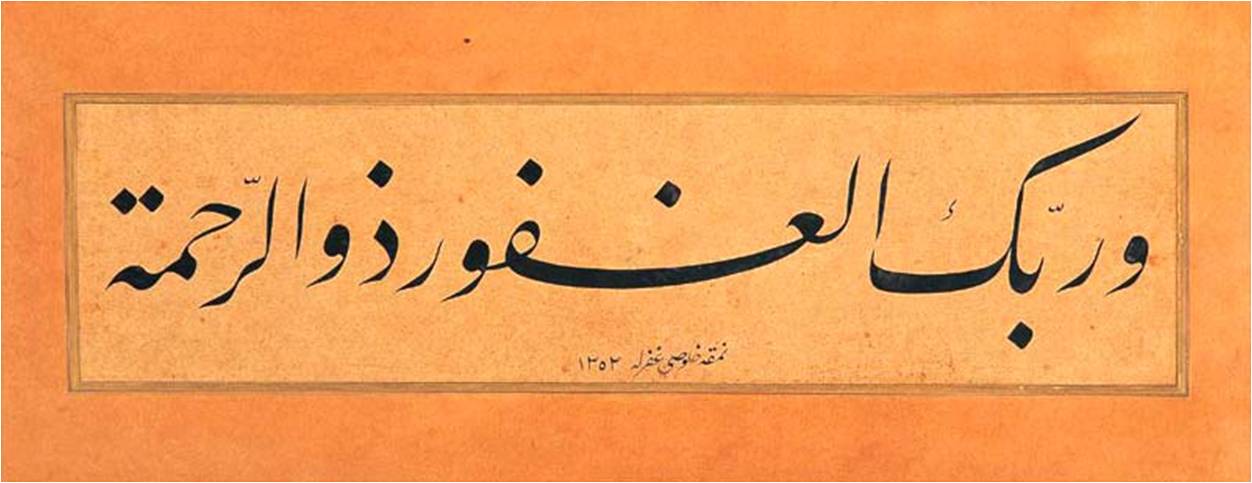 وربّك الغفور ذوالرّحمة
نمقه خلوصی غفرله ١٣٥٣